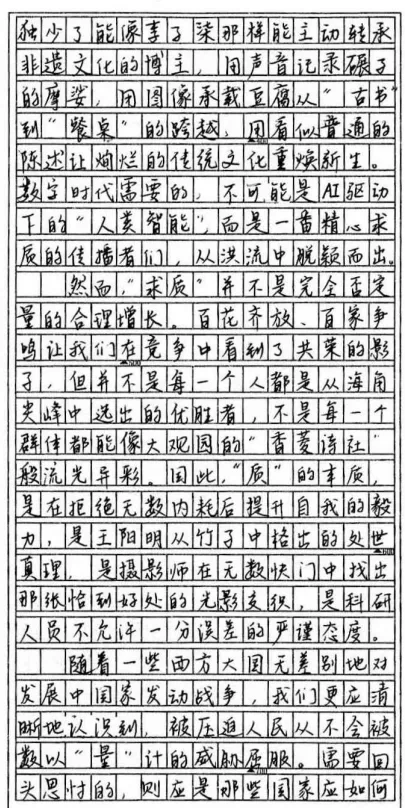 独少了能像李子柒那样能主动转承
非遗文化的博主，用声音记录碾子
的摩娑，用图像承载豆腐从“古书”
到“餐桌”的跨越，用看似普通的
陈述让绚烂的传统文化重焕新生。
数字时代需要的，不可能是AI驱动
下的“人类智能”，而是一番精心求
质的传播者们，从洪流中脱颖而出。
然而，“求质”并不是完全否定
量的合理增长。百花齐放、百家争
鸣让我们在竞争中看到了共荣的影
子，但并不是每一个人都是从海角
尖峰中选出的优胜者，不是每一个
群体都能像大观园的“香菱诗社”
般流光异彩。因此，“质”的本质，
是在拒绝无数内耗后提升自我的毅
力，是王阳明从竹子中格出的处世
真理，是摄影师在无数快门中找出
那张恰到好处的光影交织，是科研
人员不允许一分误差的严谨态度。
随着一些西方大国无差别地对
发展中国家发动战争，我们更应清
晰地认识到，被压迫人民从不会被
数以“量”计的威胁屈服。需要回
头思忖的，则应是那些国家应如何